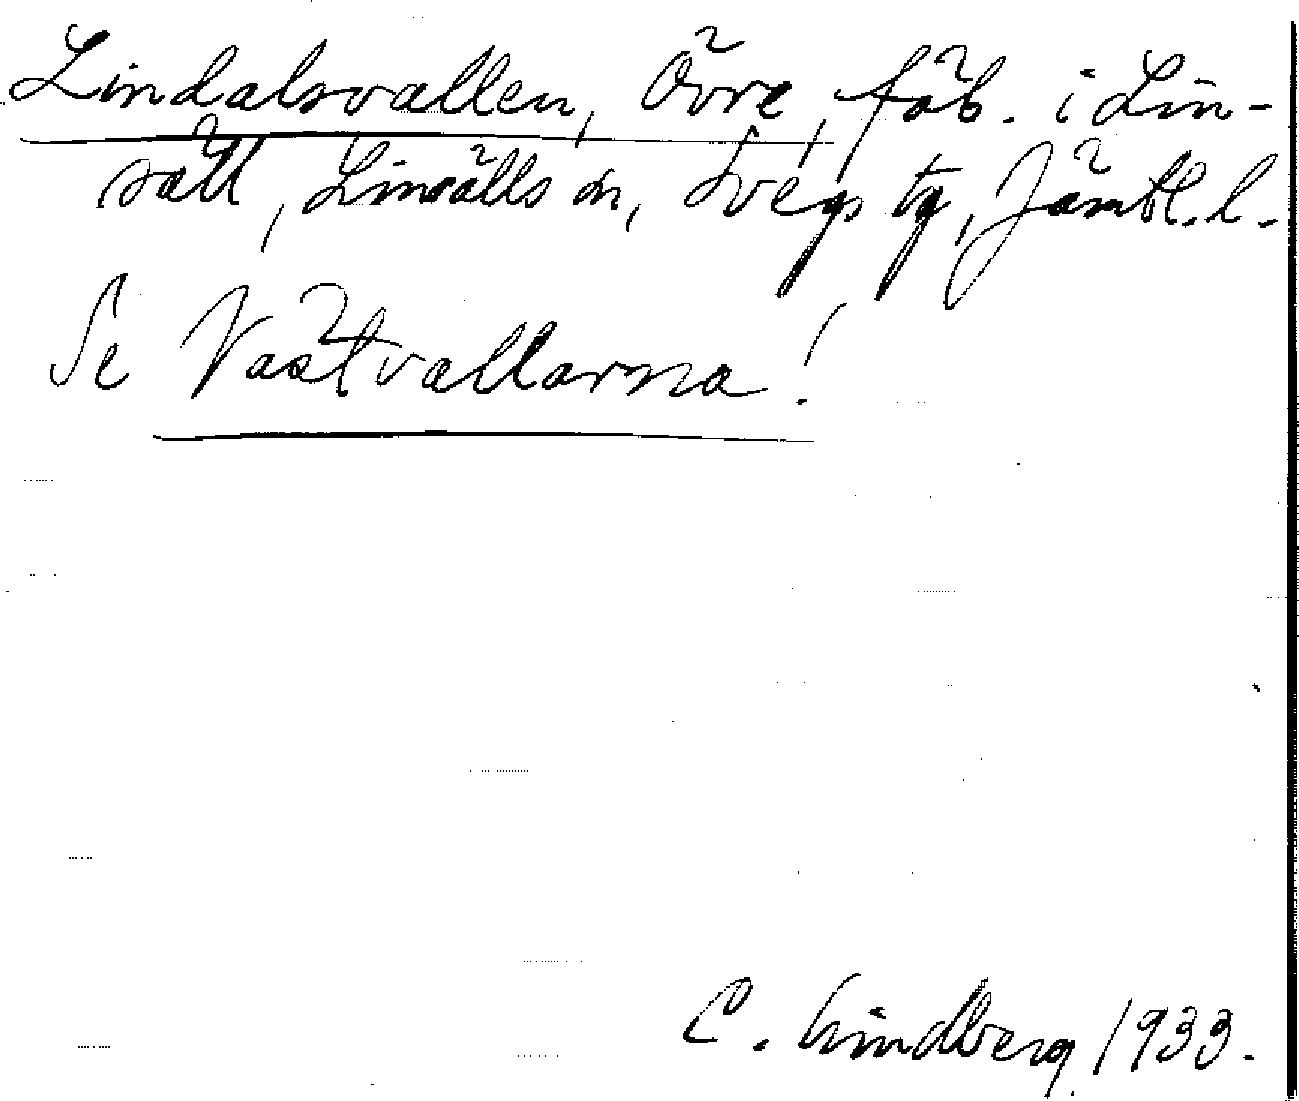 Lindalsvallen, Övre, fäb. i Lin-
sätt, Linsälls sn, Svegs tg, Jämtl. l.
Se Västvallarna!
C. Lindberg 1933.